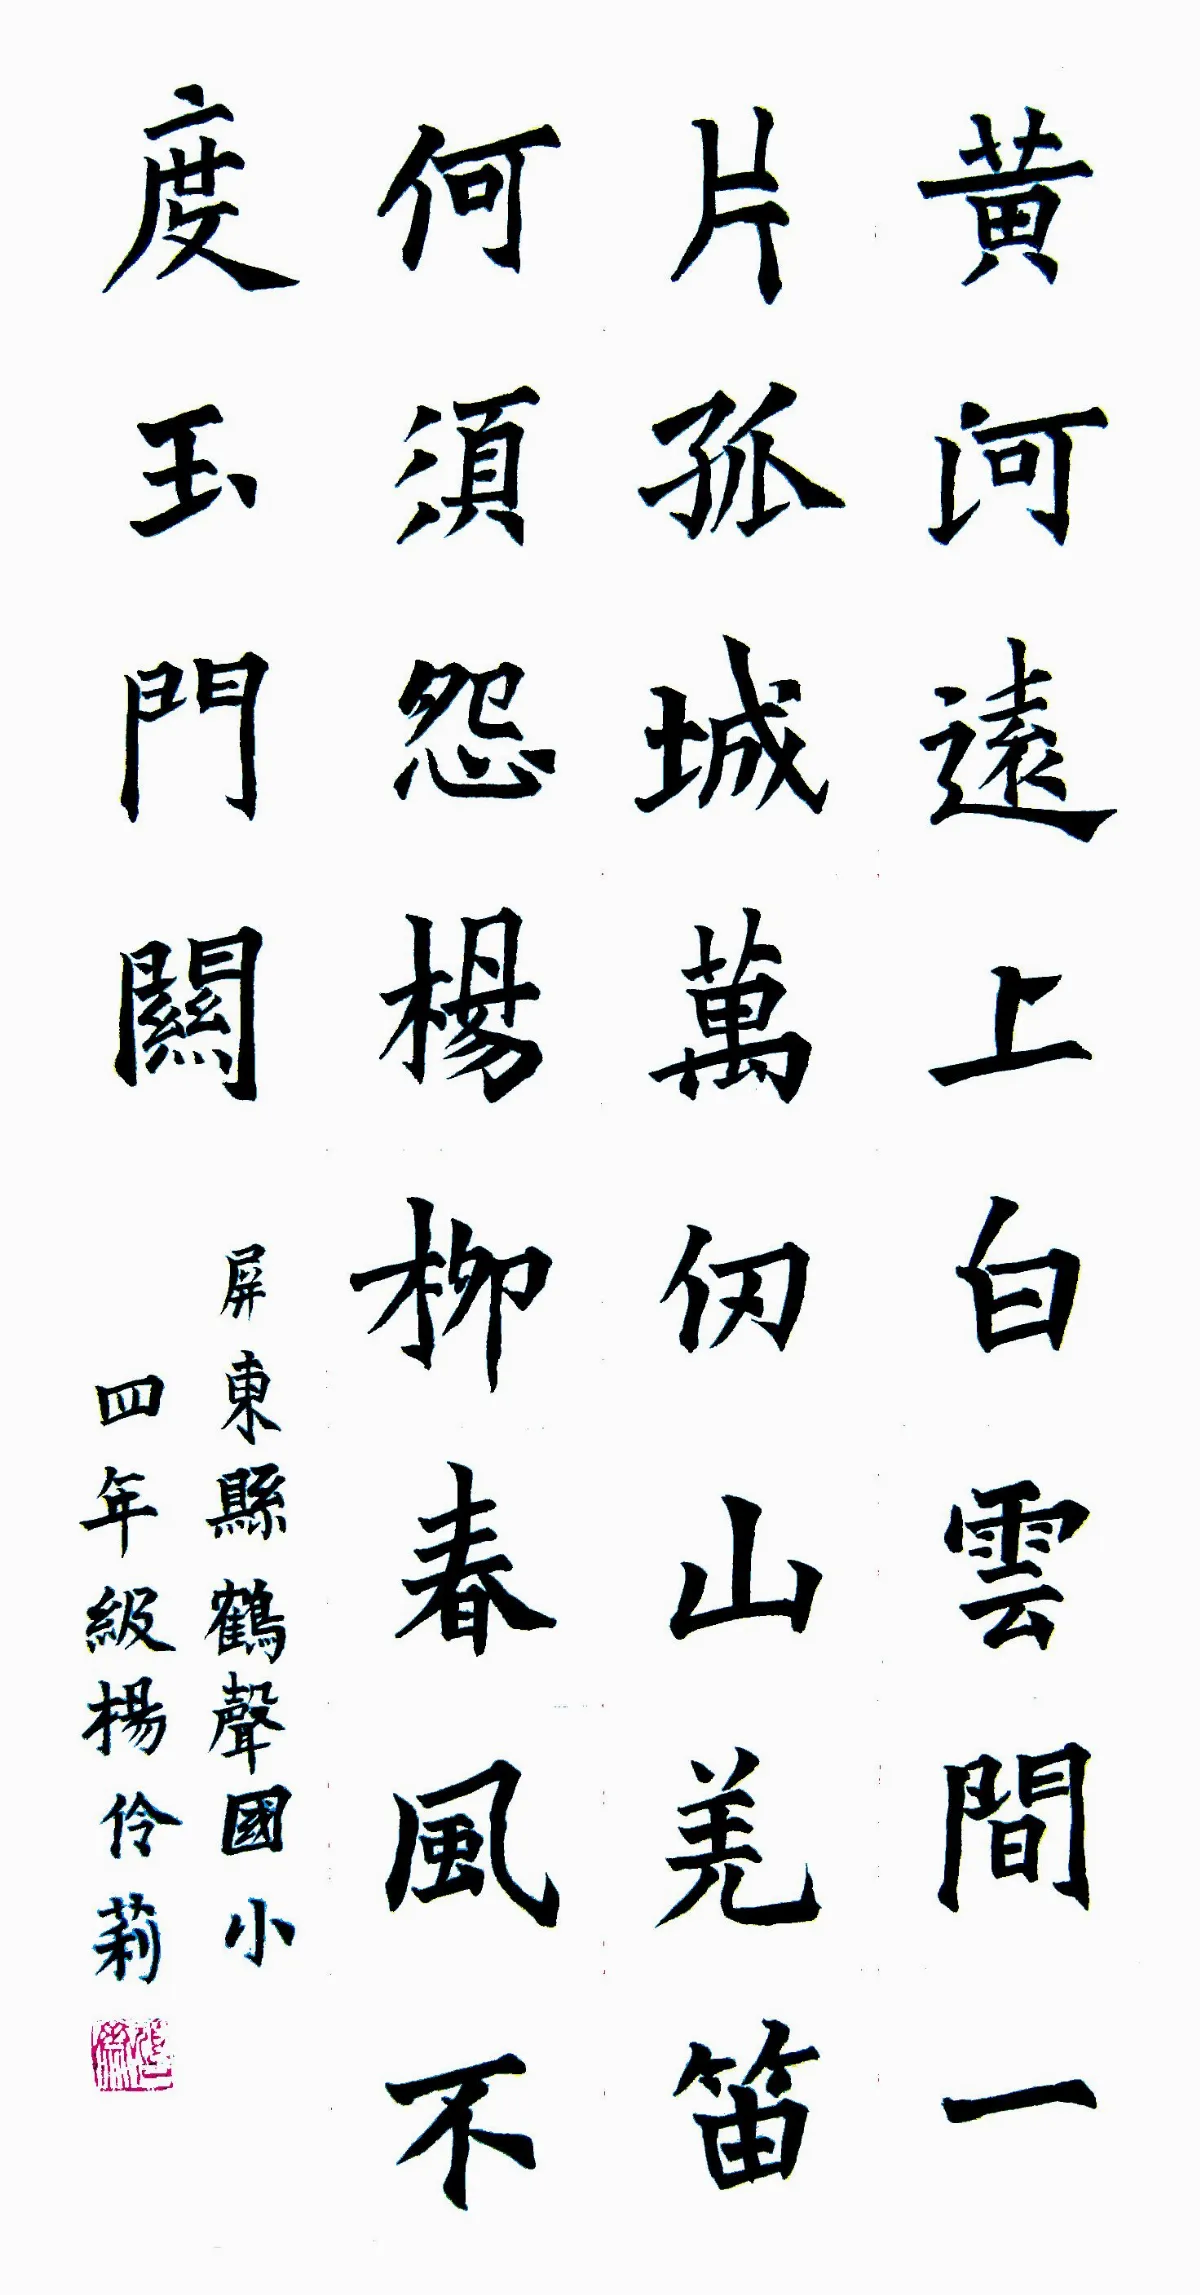 黃河遠上白雲間一
片孤城萬仞山羌笛
何須怨楊柳春風不
度玉門關
屏東縣鶴聲國小
四年級楊伶莉